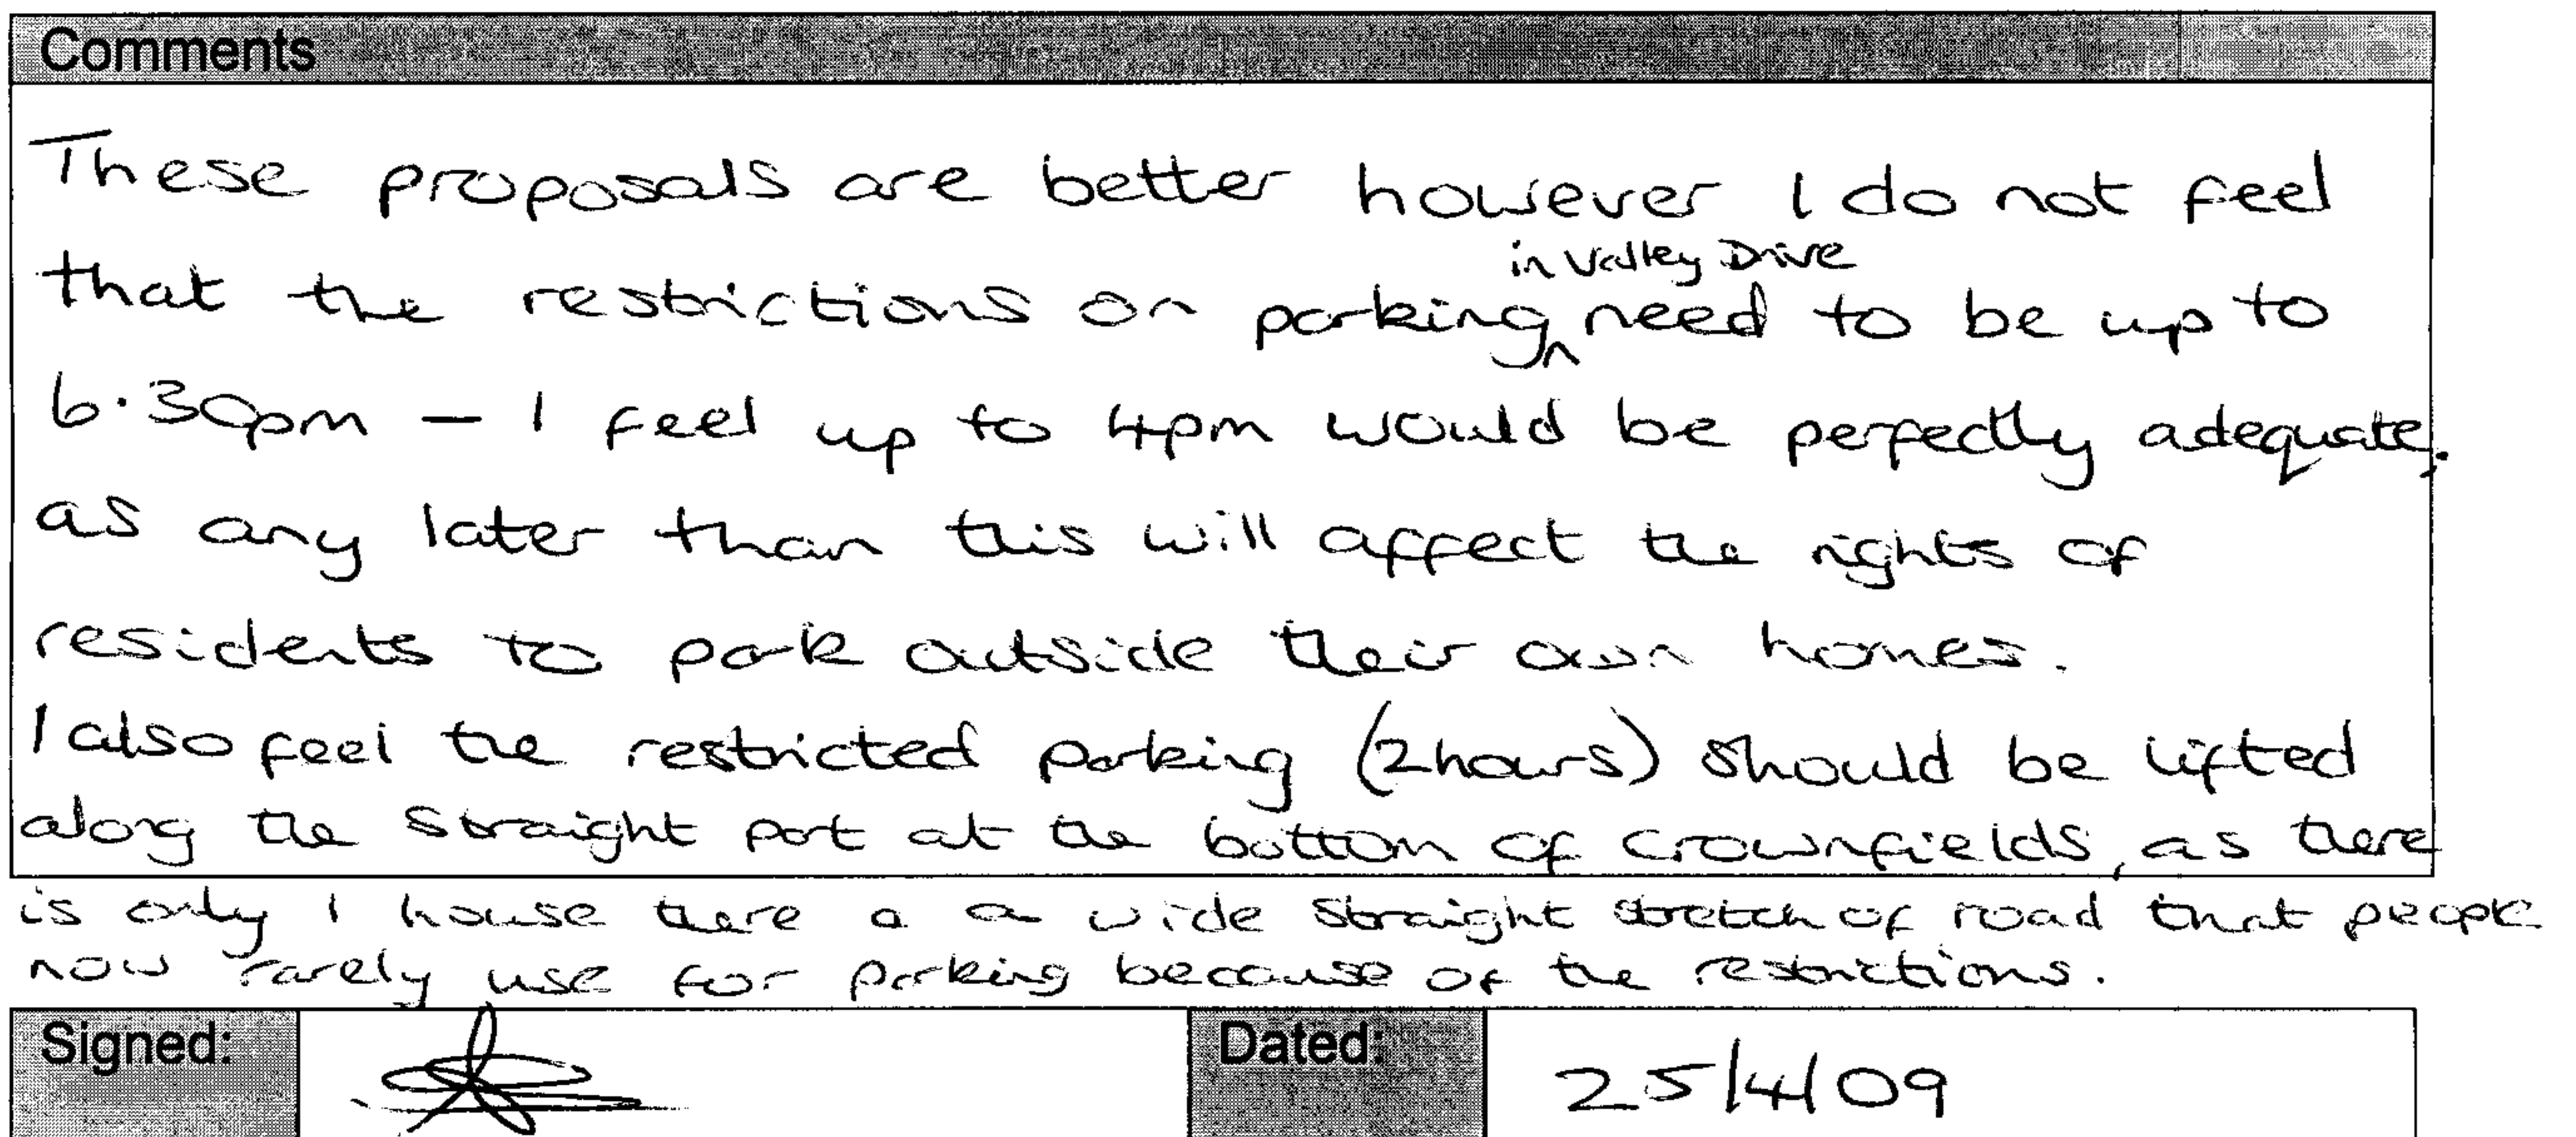 Comments
These proposals are better however I do not feel
that the restrictions on parking in Valley Drive need to be up to
6.30pm – I feel up to 4pm would be perfectly adequate,
as any later than this will affect the rights of
residents to park outside their own homes.
I also feel the restricted parking (2 hours) should be lifted
along the straight part at the bottom of Crownfields, as there
is only 1 house there a a wide straight stretch of road that people
now rarely use for parking because of the restrictions.
Signed: Dated: 25/4/09